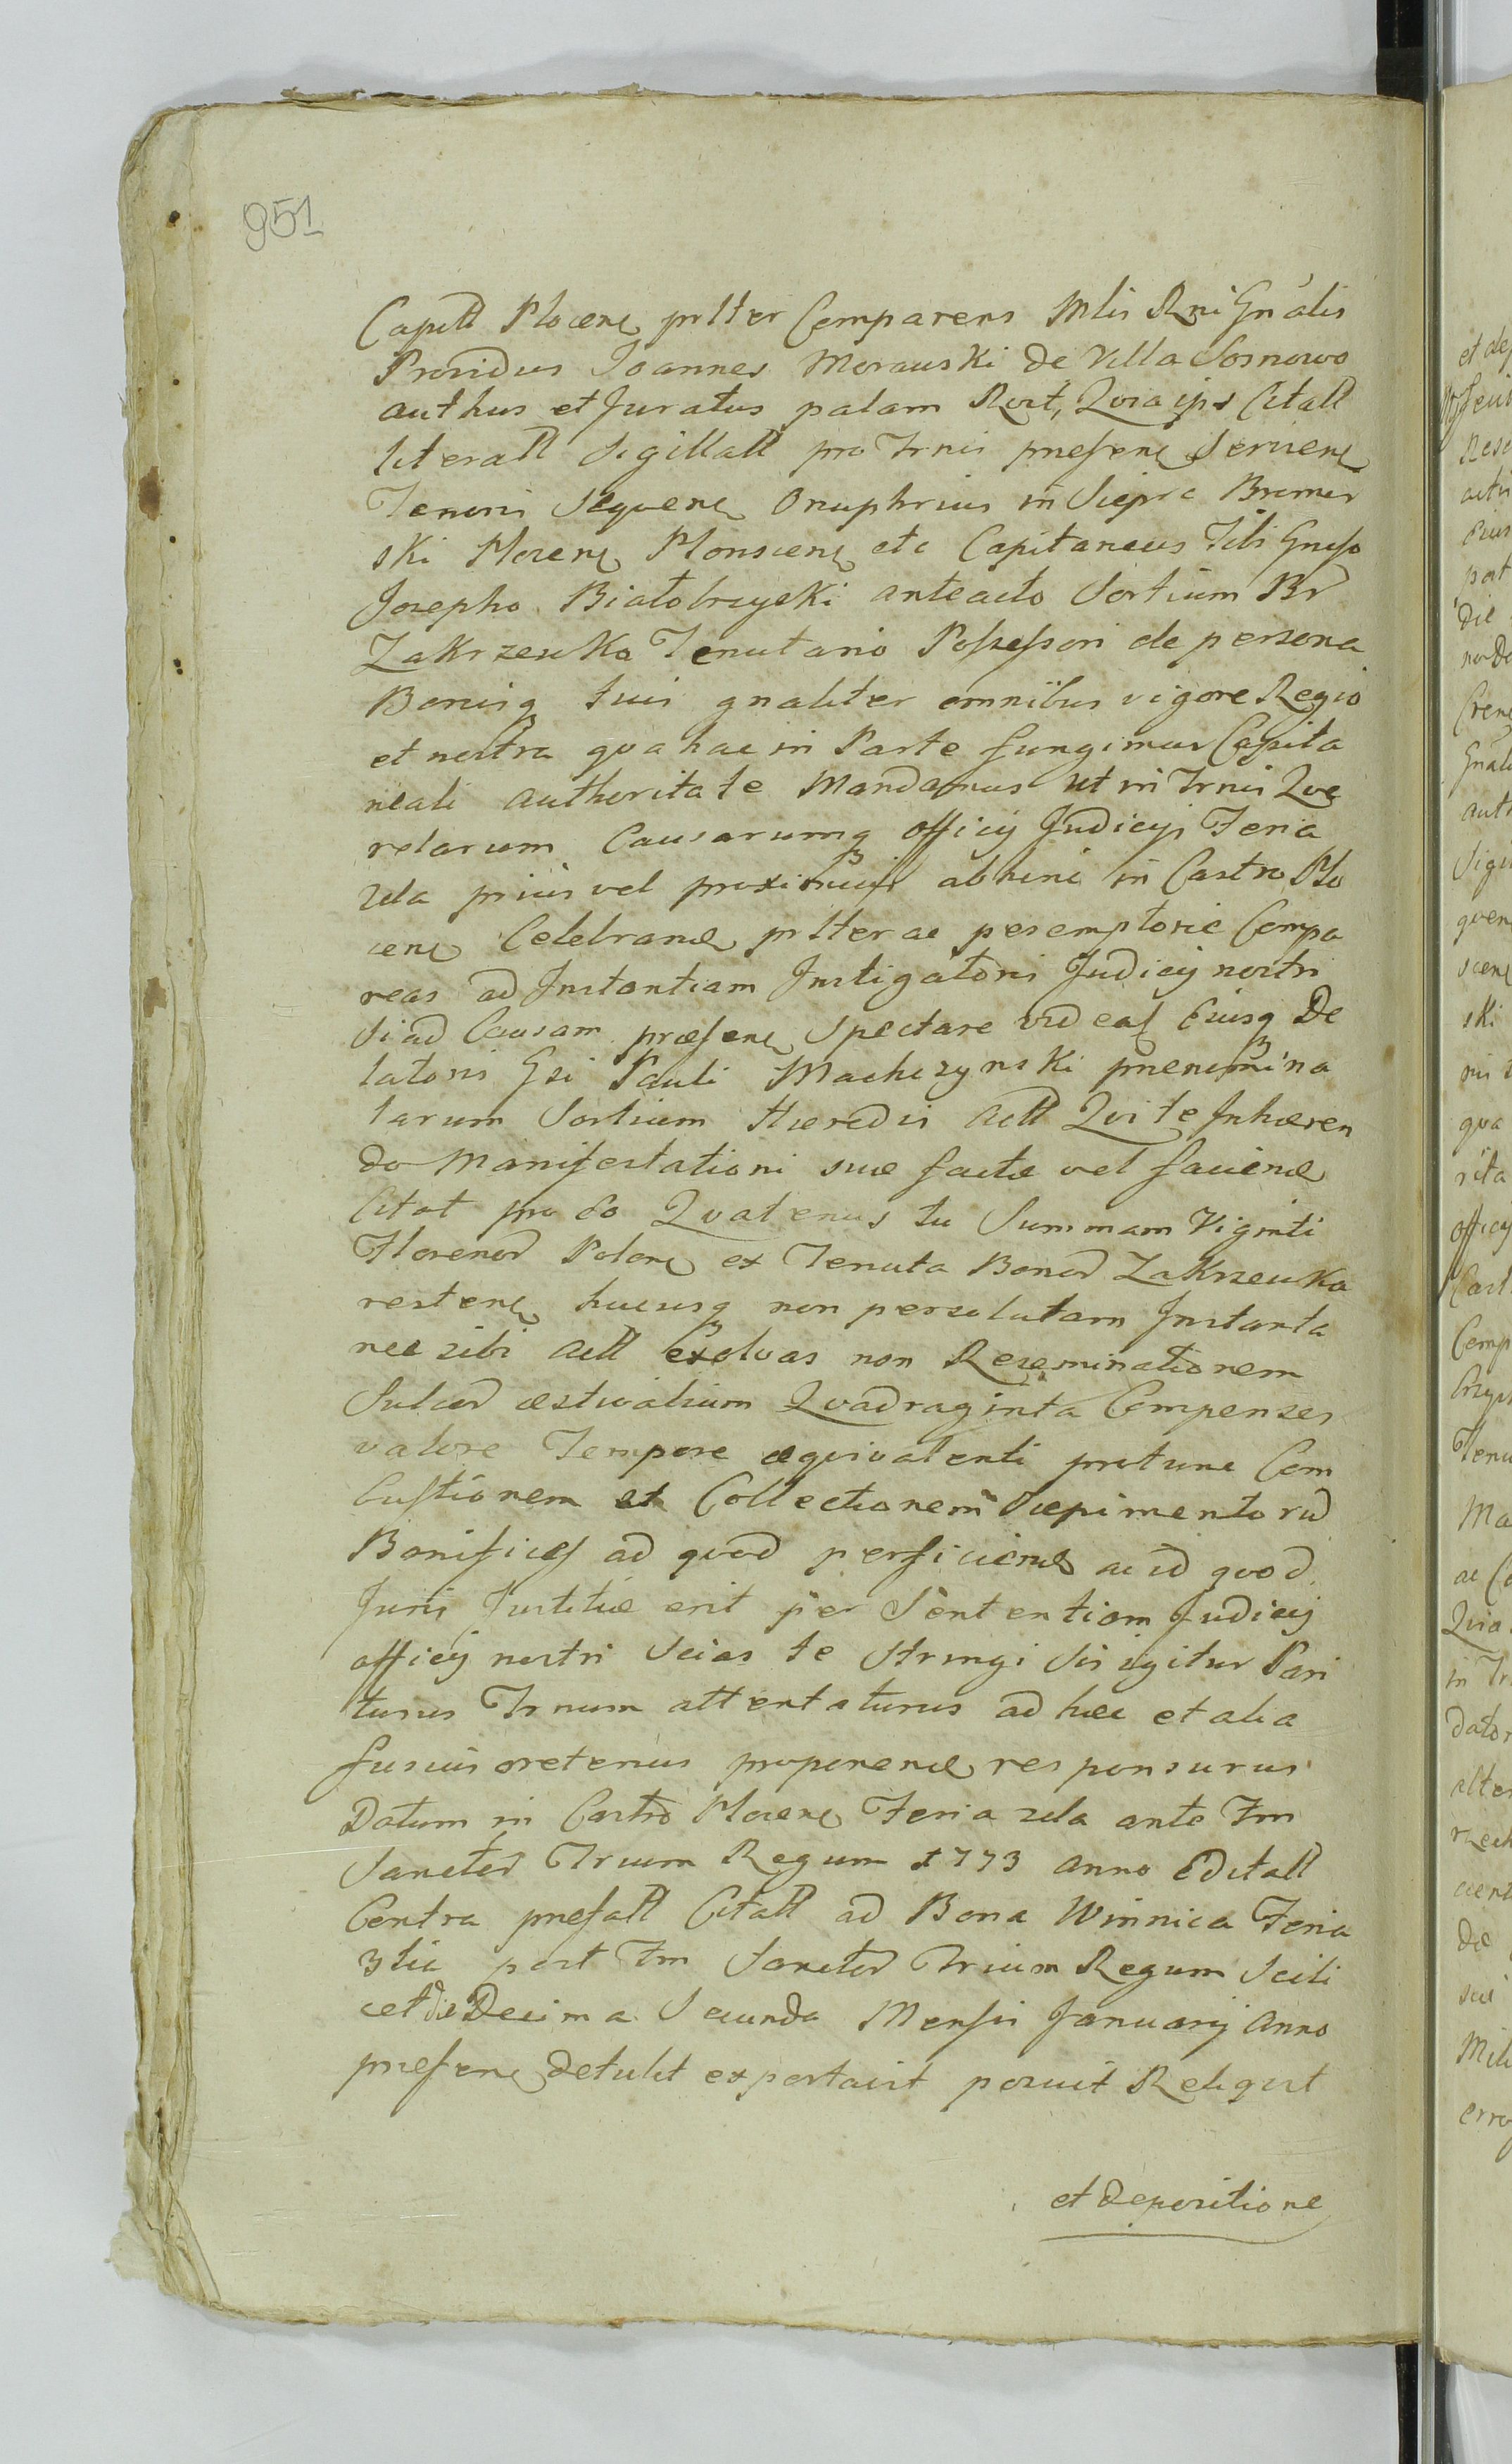 951
Capitt Plocen prlter Comparens Mlis Rni Gnalis
Providus Joannes Morauski de Villa Sosnowo
authus et Juratus palam Rvit, Quia ips Citatt
literatt Sigillatt pro Trnis presen Servien
Tenoris Sequen Onuphrius in Siepra Bromir
ski Plocen Plonscen etc Capitaneus Tibi Gnoso
Josepho Białobrzyski anteacto Sortium Br
Zakrzewka Tenutario Possessori de persona
Bonisq tuis gnaliter omnibus vigore Regio
et nostra qva hac in Parte fungimur Capita
neali authoritate Mandamus ut in Trnis Qve
relarum Causarumq officij Judicijs Feria
2da prius vel proximius abhinc in Castro Plo
cen Celebrand prlter ac peremptorie Compa
reas ad Instantiam Instigatoris Judicij nostri
Si ad Causam præsen Spectare videat Eiusq De
latoris Gsi Pauli Machczynski prænomina
tarum Sortium Hæredis Actt Qvi te Inhæren
do Manifestationi suæ factæ vel faciend
Citat pro eo Qvatenus tu Summam Viginti
Florenor Polon ex Tenuta Bonor Zakrzewka
resten hucusq non persolutam Instanta
nee sibi Actt exolvas non Reseminationem
Sulcor æstivalium Qvadraginta Compenses
valore Tempore æqvivalenti protunc Com
bustionem et Collectionem Sæpimentorum
Bonifices ad qvod perficiend ac id qvod
Juris Justitiæ erit per Sententiam Judicij
officij nostri Scias te Stringi Sis igitur Pari
turus Trnum attentaturus ad hæc et alia
fusius oretenus proponend responsurus
Datum in Castro Plocen Feria 2da ante Fm
Sanctor Trium Regum 1773 anno Editatt
Contra prefatt Citatt ad Bona Winnica Feria
3tia post Fm Sanctor Trium Regum Scili
cet die Decima Secunda Mensis Januarij Anno
presen detulit exportavit posuit Reliqvit
et depositione